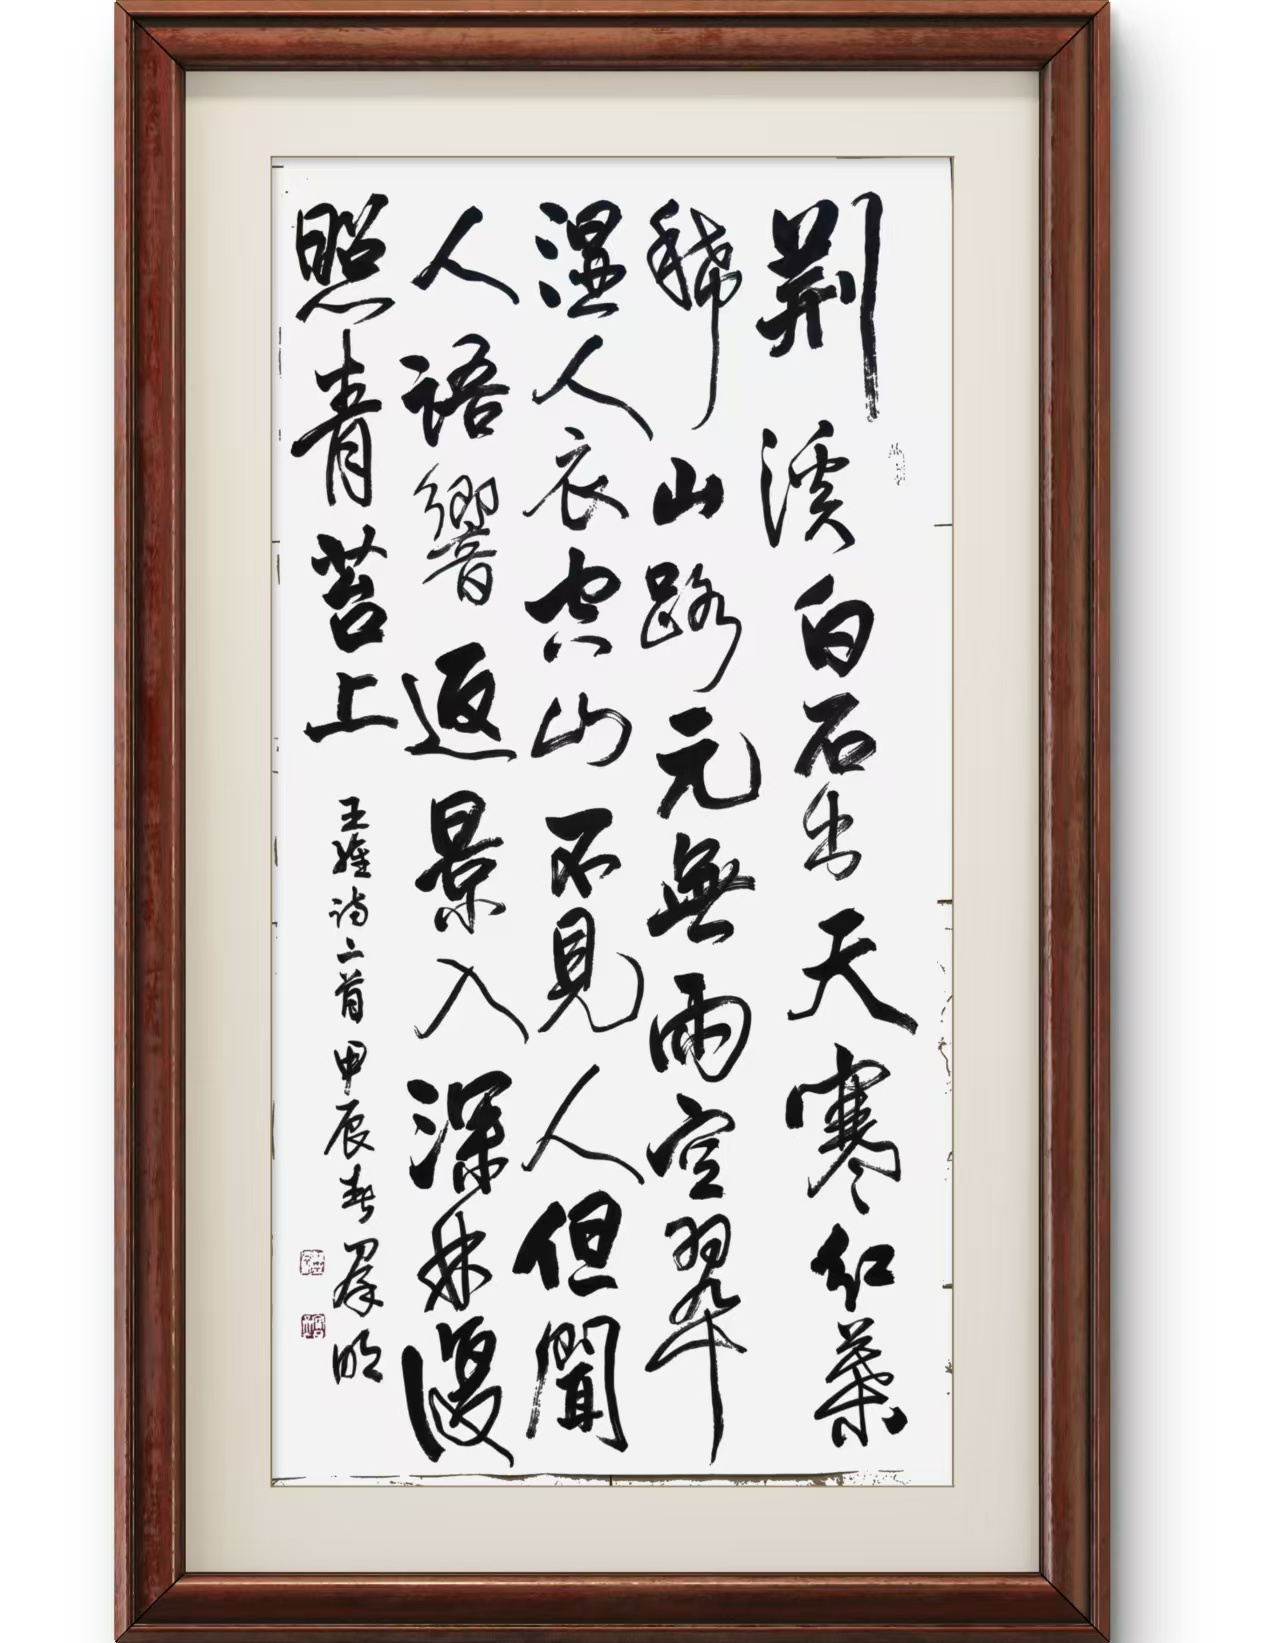 荆溪白石出天寒红葉
稀山路元無雨空翠
濕人衣空山不見人但聞
人語響返景入深林復
照青苔上
王維詩二首甲辰春羣明